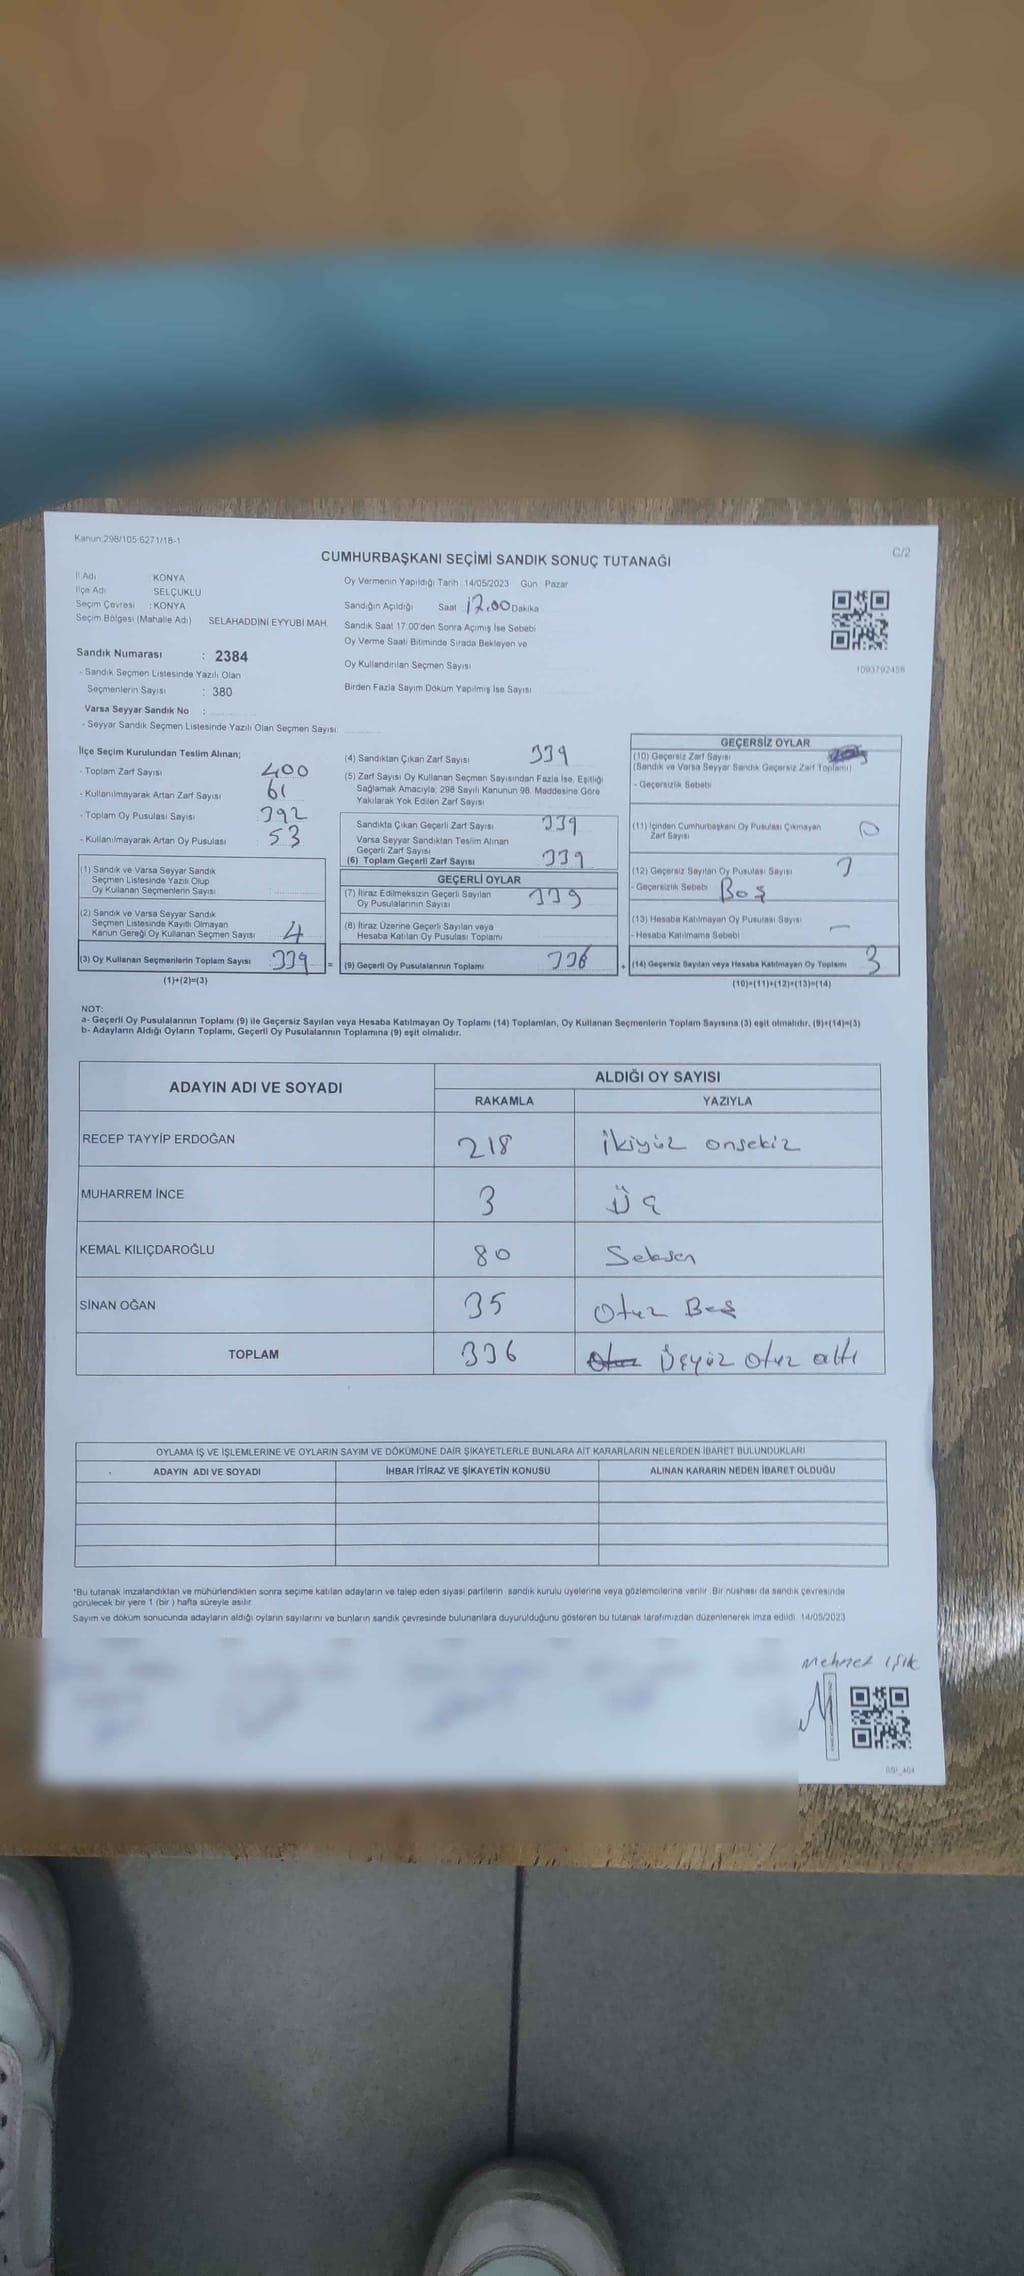 Kanun:298/105 6271/18-1
C/2
CUMHURBAŞKANI SEÇİMİ SANDIK SONUÇ TUTANAĞI
İl Adı KONYA
İlçe Adı SELÇUKLU
Seçim Çevresi : KONYA
Seçim Bölgesi (Mahalle Adı) SELAHADDİNİ EYYUBİ MAH.
Oy Vermenin Yapıldığı Tarih : 14/05/2023 Gün : Pazar
Sandığın Açıldığı Saat 17.00 Dakika
Sandık Saat 17.00'den Sonra Açımış İse Sebebi
Oy Verme Saati Bitiminde Sırada Bekleyen ve
Oy Kullandırılan Seçmen Sayısı
Birden Fazla Sayım Döküm Yapılmış İse Sayısı
1093792458
Sandık Numarası : 2384
- Sandık Seçmen Listesinde Yazılı Olan
Seçmenlerin Sayısı : 380
Varsa Seyyar Sandık No :
- Seyyar Sandık Seçmen Listesinde Yazılı Olan Seçmen Sayısı:
İlçe Seçim Kurulundan Teslim Alınan;
- Toplam Zarf Sayısı 400
- Kullanılmayarak Artan Zarf Sayısı 61
- Toplam Oy Pusulası Sayısı 392
- Kullanılmayarak Artan Oy Pusulası 53
(1) Sandık ve Varsa Seyyar Sandık
Seçmen Listesinde Yazılı Olup
Oy Kullanan Seçmenlerin Sayısı
(2) Sandık ve Varsa Seyyar Sandık
Seçmen Listesinde Kayıtlı Olmayan
Kanun Gereği Oy Kullanan Seçmen Sayısı 4
(3) Oy Kullanan Seçmenlerin Toplam Sayısı 339 =
(1)+(2)=(3)
(4) Sandıktan Çıkan Zarf Sayısı 339
(5) Zarf Sayısı Oy Kullanan Seçmen Sayısından Fazla İse, Eşitliği
Sağlamak Amacıyla; 298 Sayılı Kanunun 98. Maddesine Göre
Yakılarak Yok Edilen Zarf Sayısı
Sandıkta Çıkan Geçerli Zarf Sayısı 339
Varsa Seyyar Sandıktan Teslim Alınan
Geçerli Zarf Sayısı
(6) Toplam Geçerli Zarf Sayısı 339
GEÇERLİ OYLAR
(7) İtiraz Edilmeksizin Geçerli Sayılan
Oy Pusulalarının Sayısı 339
(8) İtiraz Üzerine Geçerli Sayılan veya
Hesaba Katılan Oy Pusulası Toplamı
(9) Geçerli Oy Pusulalarının Toplamı 336 +
GEÇERSİZ OYLAR
(10) Geçersiz Zarf Sayısı
(Sandık ve Varsa Seyyar Sandık Geçersiz Zarf Toplamı)
- Geçersizlik Sebebi
(11) İçinden Cumhurbaşkanı Oy Pusulası Çıkmayan
Zarf Sayısı 0
(12) Geçersiz Sayılan Oy Pusulası Sayısı 3
- Geçersizlik Sebebi Boş
(13) Hesaba Katılmayan Oy Pusulası Sayısı —
- Hesaba Katılmama Sebebi
(14) Geçersiz Sayılan veya Hesaba Katılmayan Oy Toplamı 3
(10)+(11)+(12)+(13)=(14)
NOT:
a- Geçerli Oy Pusulalarının Toplamı (9) ile Geçersiz Sayılan veya Hesaba Katılmayan Oy Toplamı (14) Toplamları, Oy Kullanan Seçmenlerin Toplam Sayısına (3) eşit olmalıdır. (9)+(14)=(3)
b- Adayların Aldığı Oyların Toplamı, Geçerli Oy Pusulalarının Toplamına (9) eşit olmalıdır.
ADAYIN ADI VE SOYADI
ALDIĞI OY SAYISI
RAKAMLA YAZIYLA
RECEP TAYYİP ERDOĞAN 218 İkiyüz onsekiz
MUHARREM İNCE 3 Üç
KEMAL KILIÇDAROĞLU 80 Seksen
SİNAN OĞAN 35 Otuz Beş
TOPLAM 336 Üçyüz otuz altı
OYLAMA İŞ VE İŞLEMLERİNE VE OYLARIN SAYIM VE DÖKÜMÜNE DAİR ŞİKAYETLERLE BUNLARA AİT KARARLARIN NELERDEN İBARET BULUNDUKLARI
ADAYIN ADI VE SOYADI İHBAR İTİRAZ VE ŞİKAYETİN KONUSU ALINAN KARARIN NEDEN İBARET OLDUĞU
*Bu tutanak imzalandıktan ve mühürlendikten sonra seçime katılan adayların ve talep eden siyasi partilerin sandık kurulu üyelerine veya gözlemcilerine verilir. Bir nüshası da sandık çevresinde
görülecek bir yere 1 (bir ) hafta süreyle asılır.
Sayım ve döküm sonucunda adayların aldığı oyların sayılarını ve bunların sandık çevresinde bulunanlara duyurulduğunu gösteren bu tutanak tarafımızdan düzenlenerek imza edildi. 14/05/2023
Mehmet Işık